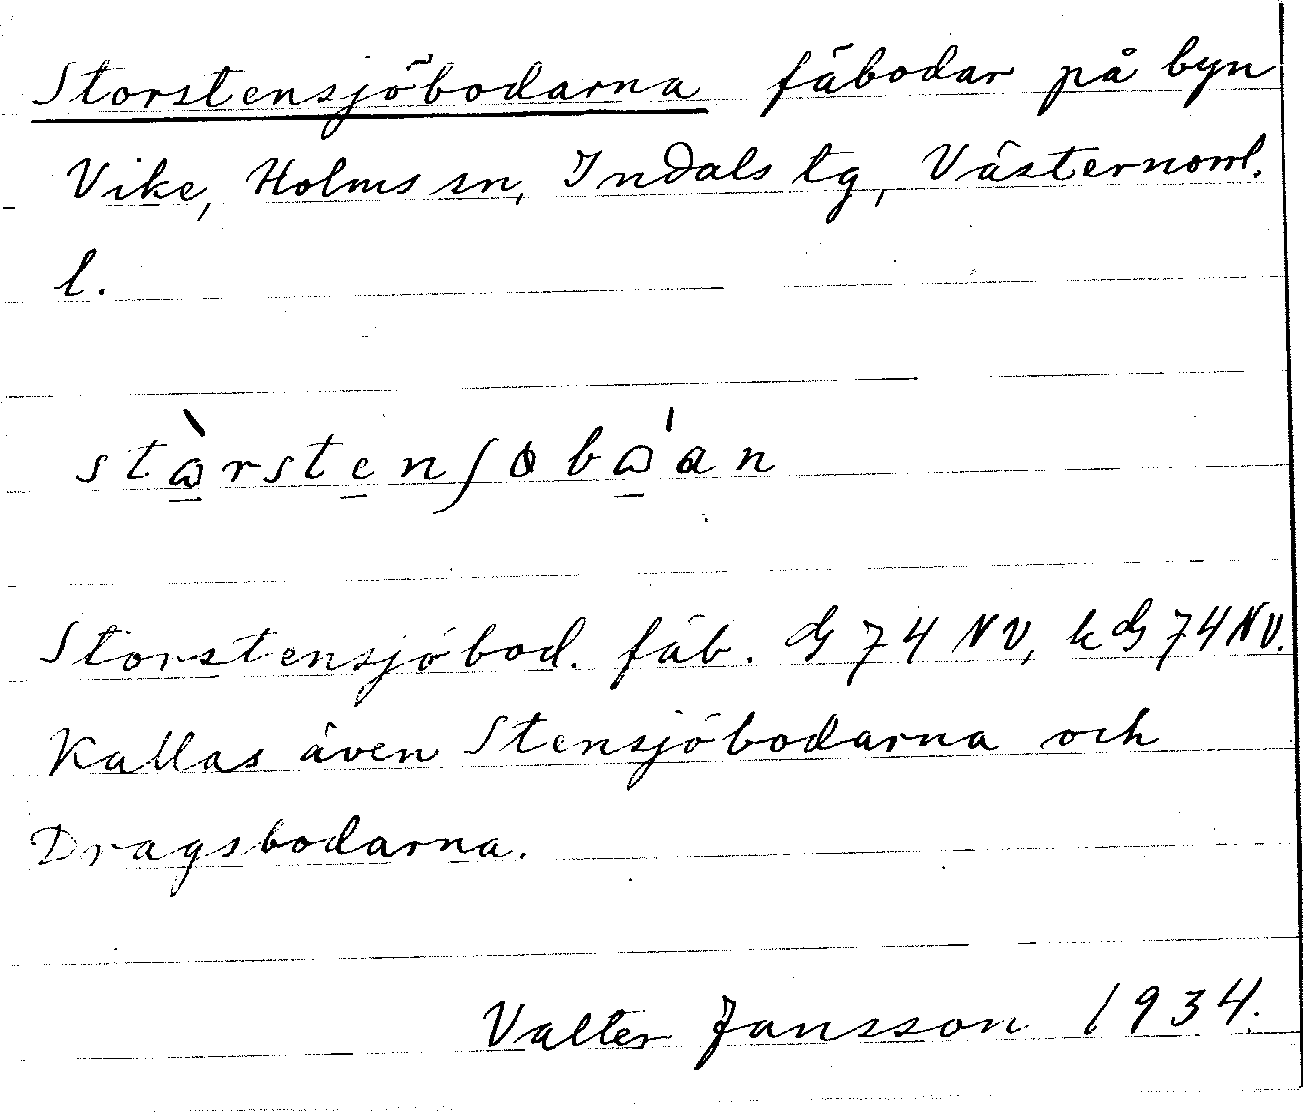 Storstensjöbodarna fäbodar på byn
Vike, Holms sn, Indals tg, Västernorrl.
l.
stɷ̀rstenʃobɷ́an
Storstensjöbod. fäb. G 74 NV, k G 74 NV.
Kallas även Stensjöbodarna och
Dragsbodarna.
Valter Jansson 1934.